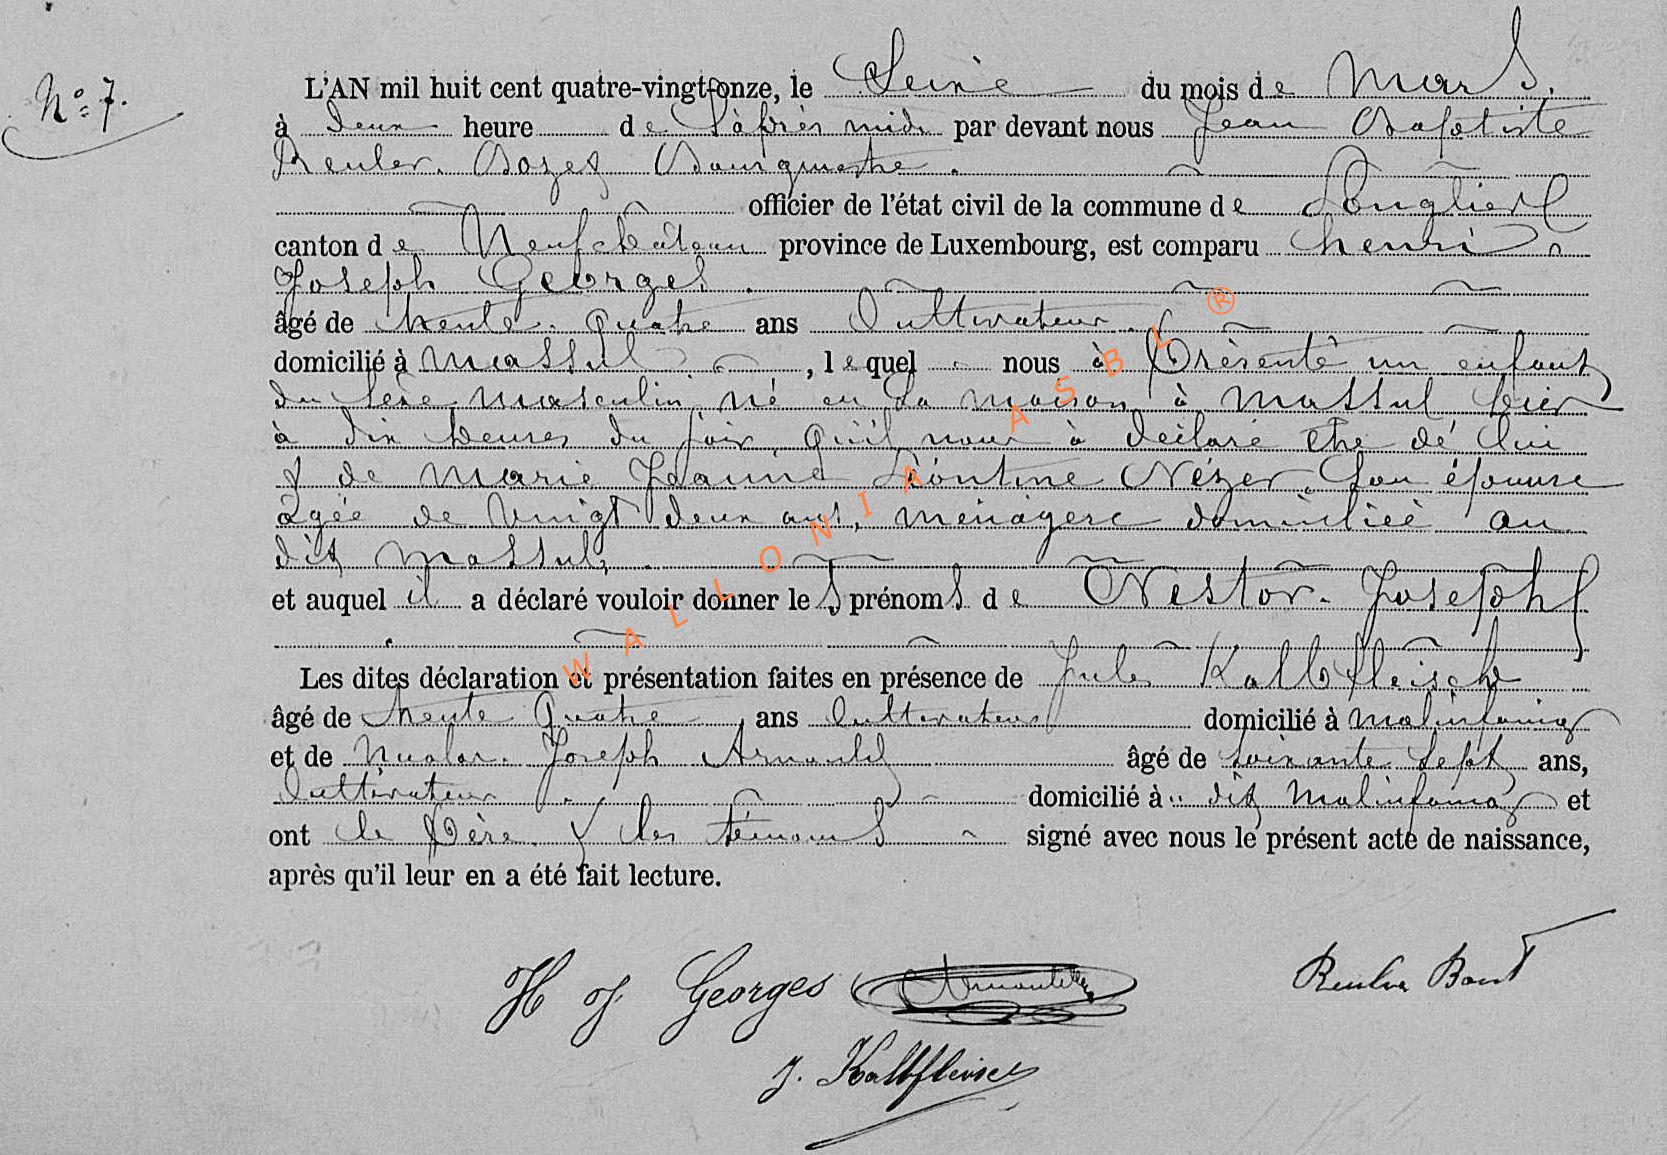 N° 7.
L'AN mil huit cent quatre-vingt-onze, le Seize du mois de Mars.
à deux heure de l'après midi par devant nous Jean Baptiste
Reuler. Bourgmestre.
officier de l'état civil de la commune de Longlier
canton de Neufchâteau province de Luxembourg, est comparu henri
Joseph Georges.
âgé de trente-quatre ans Cultivateur.
domicilié à Massul, lequel nous à Présenté un enfant
du Sexe masculin, né en Sa maison à Massul hier
à dix heures du soir qu'il nous à déclaré être dé lui
& de Marie Jeanne Léontine Nézer, Son épouse
âgée de Vingt deux ans, ménagère domiciliée au
dit Massul.
et auquel il a déclaré vouloir donner leS prénomS de Nestor-Joseph
Les dites déclaration et présentation faites en présence de Jules Kalbfleisch
âgé de trente Quatre ans Cultivateur domicilié à Malinfaing
et de Nicolas-Joseph Arnould âgé de soixante Sept ans,
Cultivateur domicilié à dit Malinfaing et
ont le Père & les témoins signé avec nous le présent acte de naissance,
après qu'il leur en a été fait lecture.
H J Georges Arnould
J. Kalbfleisch
WALLONIA ASBL ®